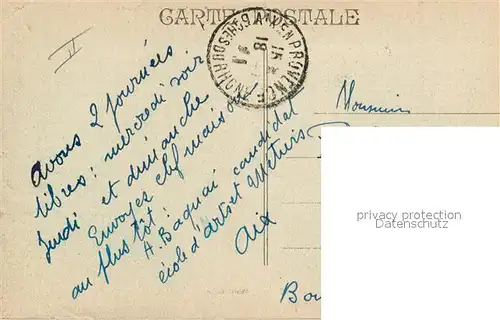 CARTE POSTALE
II
AIX EN PROVENCE
BCHES DU RHONE
18
15
avons 2 journées
libres : mercredi soir
Jeudi et dimanche
Envoyez clef maison
au plus tôt.
A. Baquai candidat
école d'arts et Métiers
Aix
Monsieur
privacy protection
Bo